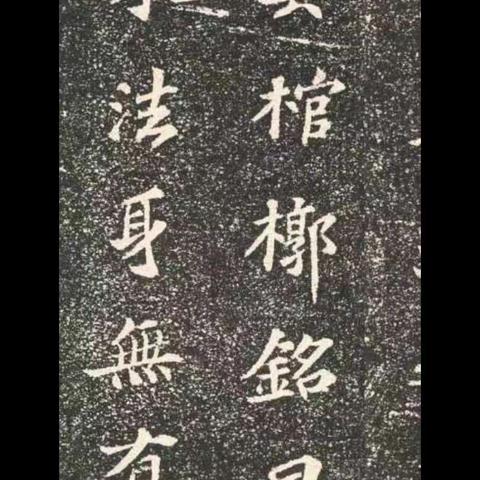 棺槨銘
法身無有